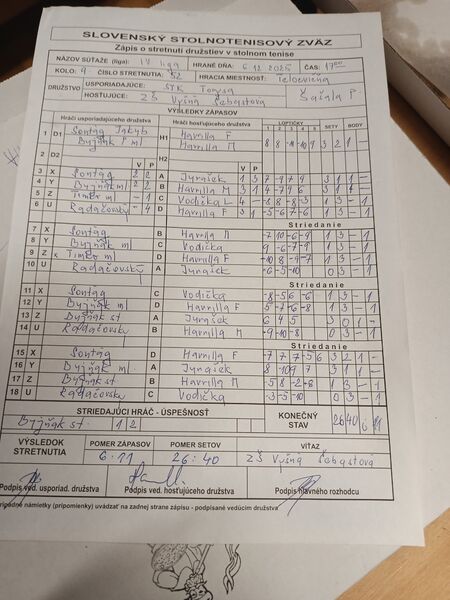 SLOVENSKÝ STOLNOTENISOVÝ ZVÄZ
Zápis o stretnutí družstiev v stolnom tenise
NÁZOV SÚŤAŽE (liga): IV liga HRANÉ DŇA: 6.12.2025 ČAS: 17:00
KOLO: 9 ČÍSLO STRETNUTIA: 52 HRACIA MIESTNOSŤ: Telocvičňa
DRUŽSTVO USPORIADAJÚCE: STK Torysa
HOSŤUJÚCE: ZŠ Vyšná Šebastova
VÝSLEDKY ZÁPASOV
Hráči usporiadajúceho družstva Hráči hosťujúceho družstva LOPTIČKY SETY BODY
1 2 3 4 5
1 D1 Sontág Jakub H1 Havrilla F
Byjňak ml Havrilla M 3 2 1 -
2 D2 H2
V P V P
3 X Sontág 2 2 A Jurašek 1 3 3 1 1 -
4 Y Byjňak ml 2 2 B Havrilla M 3 1 3 1 1 -
5 Z Timko ml - 1 C Vodička L 4 - 1 3 - 1
6 U Radačovský - 4 D Havrilla F 3 1
Striedanie
7 X Sontág B Havrilla M -7 10 -6 -9 1 3 - 1
8 Y Byjňak ml C Vodička 9 -6 -7 -9 1 3 - 1
9 Z x Timko ml D Havrilla F 1 3 - 1
10 U Radačovský A Jurašek -6 -5 -10 0 3 - 1
Striedanie
11 X Sontág C Vodička -8 -5 6 -6 1 3 - 1
12 Y Byjňak ml D Havrilla F 5 -7 -6 -8 1 3 - 1
13 Z Byjňak st A Jurašek 6 4 5 3 0 1 -
14 U Radačovský B Havrilla M -9 -10 -8 0 3 - 1
Striedanie
15 X Sontág D Havrilla F 3 2 1 -
16 Y Byjňak ml A Jurašek 3 1 1 -
17 Z Byjňak st B Havrilla M -5 8 -2 -8 1 3 - 1
18 U Radačovský C Vodička -3 -5 -10 0 3 - 1
STRIEDAJÚCI HRÁČ - ÚSPEŠNOSŤ KONEČNÝ STAV 26 40 6 11
Byjňak st. 1 2
VÝSLEDOK STRETNUTIA POMER ZÁPASOV POMER SETOV VÍŤAZ
6:11 26:40 ZŠ Vyšná Šebastova
Podpis ved. usporiad. družstva Podpis ved. hosťujúceho družstva Podpis hlavného rozhodcu
námietky (pripomienky) uvádzať na zadnej strane zápisu - podpísané vedúcim družstva